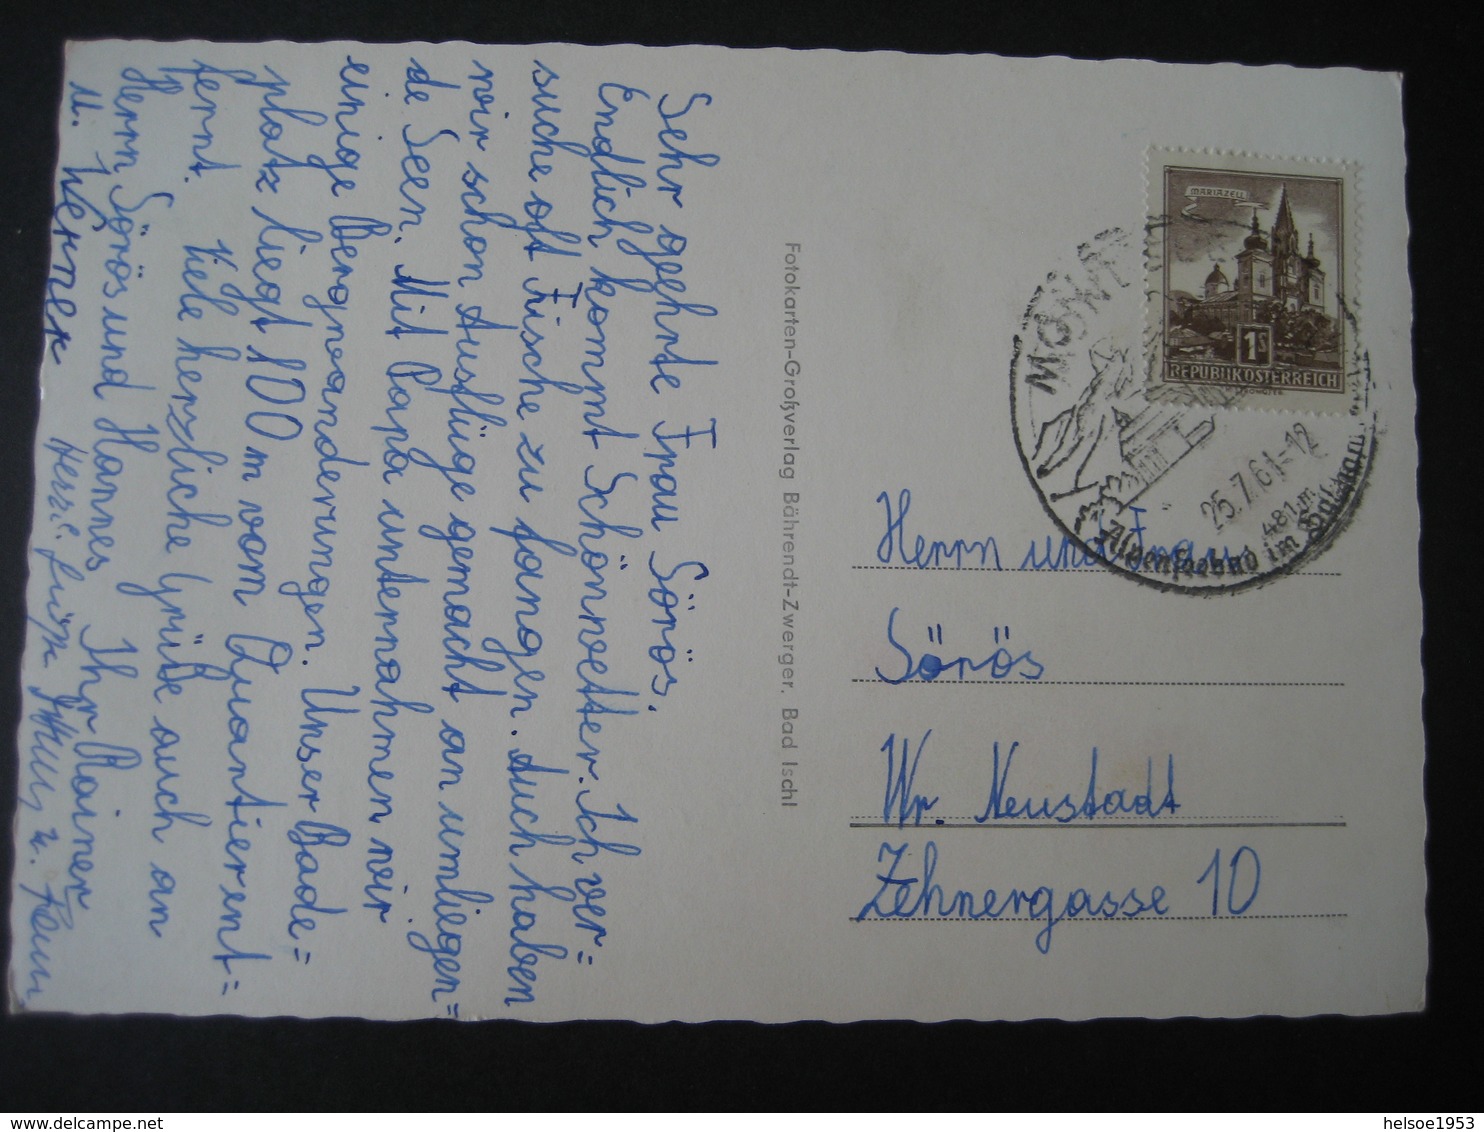 Sehr geehrte Frau Sörös.
Endlich kommt Schönwetter. Ich ver=
suche oft Fische zu fangen. Auch haben
wir schon Ausflüge gemacht an umliegen=
de Seen. Mit Papa unternahmen wir
einige Bergwanderungen. Unser Bade=
platz liegt 100 m vom Quartier ent=
fernt. Viele herzliche Grüße auch an
Herrn Sörös und Hannes Ihr Rainer
u. Werner
Fotokarten-Großverlag Bährendt-Zwerger, Bad Ischl
MARIAZELL
1S
REPUBLIK ÖSTERREICH
25.7.61-12
481 m
Herrn und Frau
Sörös
Wr. Neustadt
Zehnergasse 10
helsoe1953